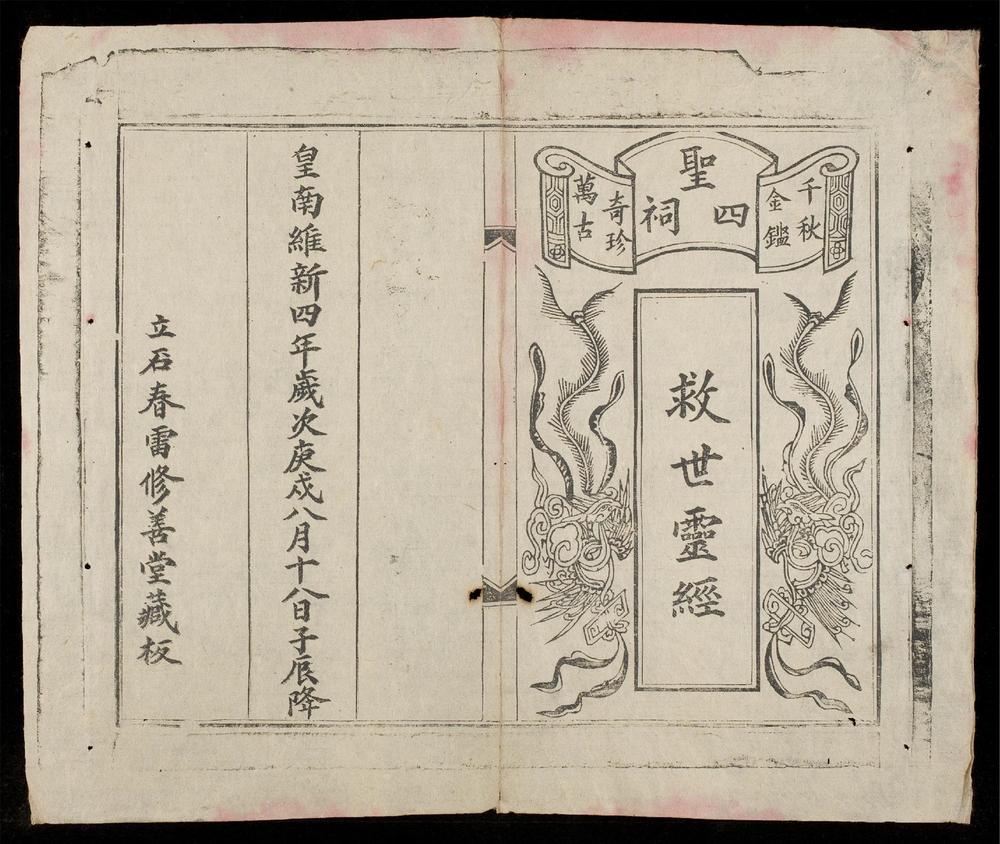 千秋
金鑑
聖
四
祠
奇珍
萬古
救世靈經
皇南維新四年歲次庚戌八月十八日子辰降
立石春雷修善堂藏板